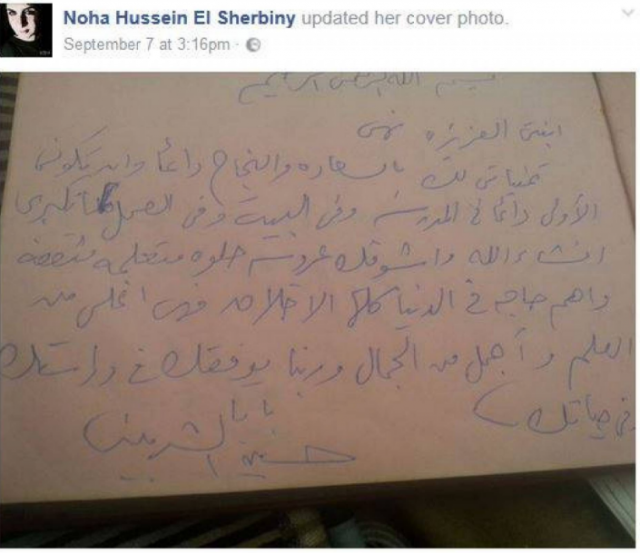 Noha Hussein El Sherbiny updated her cover photo.
September 7 at 3:16pm
بسم الله الرحمن الرحيم
ابنتى العزيزه نهى
تمنياتى لك بالسعاده والنجاح دائما وان تكونى
الأولى دائما فى المدرسه وفى البيت وفى العمل لما تكبرى
انشاء الله واشوفك عروسه حلوه متعلمه مثقفه
واهم حاجه فى الدنيا كلها الاخلاق فهى اغلى من
العلم وأجمل من الجمال وربنا يوفقك فى دراستك
وفى حياتك
بابا
حسين الشربينى